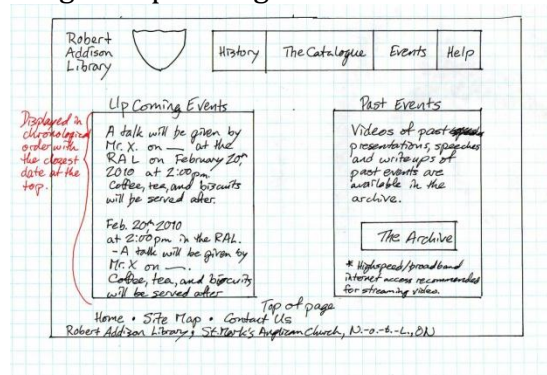 Robert
Addison
Library
History
The Catalogue
Events
Help
Displayed in
chronological
order with
the closest
date at the
top.
Up Coming Events
A talk will be given by
Mr. X. on __ at the
RAL on February 20th,
2010 at 2:00pm.
Coffee, tea, and biscuits
will be served after.
Feb. 20th 2010
at 2:00pm in the RAL.
- A talk will be given by
Mr. X on __.
Coffee, tea, and biscuits
will be served after
Past Events
Videos of past
presentations, speeches
and writeups of
past events are
available in the
archive.
The Archive
* Highspeed/broadband
internet access recommended
for streaming video.
Top of page
Home • Site Map • Contact Us
Robert Addison Library, St. Mark's Anglican Church, N.-o.-t.-L., ON